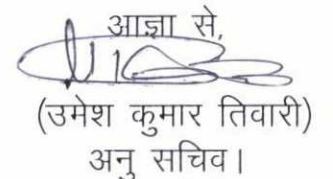 आज्ञा से,
(उमेश कुमार तिवारी)
अनु सचिव।